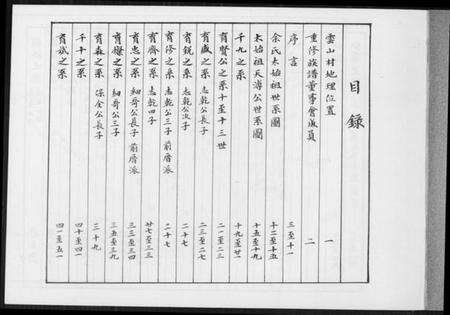 目錄
雲山村地理位置 一
重修族譜董事會成員 二
序言 三至十一
余氏太始祖世系圖 十二至十五
太始祖天海公世系圖 十五至十九
千九之系 十九至廿一
育賢公之系十至十三世 二一至二三
育盛之系 志乾公長子 二三至二七
育銳之系 志乾公次子 二十七
育修之系 志乾公三子 前厝派 二十七
育齊之系 志乾四子 廿七至三三
育忠之系 細哥公長子 前厝派 三三至三四
育楹之系 細哥公三子 三五至三九
育森之系 保全公長子 三十九
千十之系 四十至四一
育斌之系 四一至五一